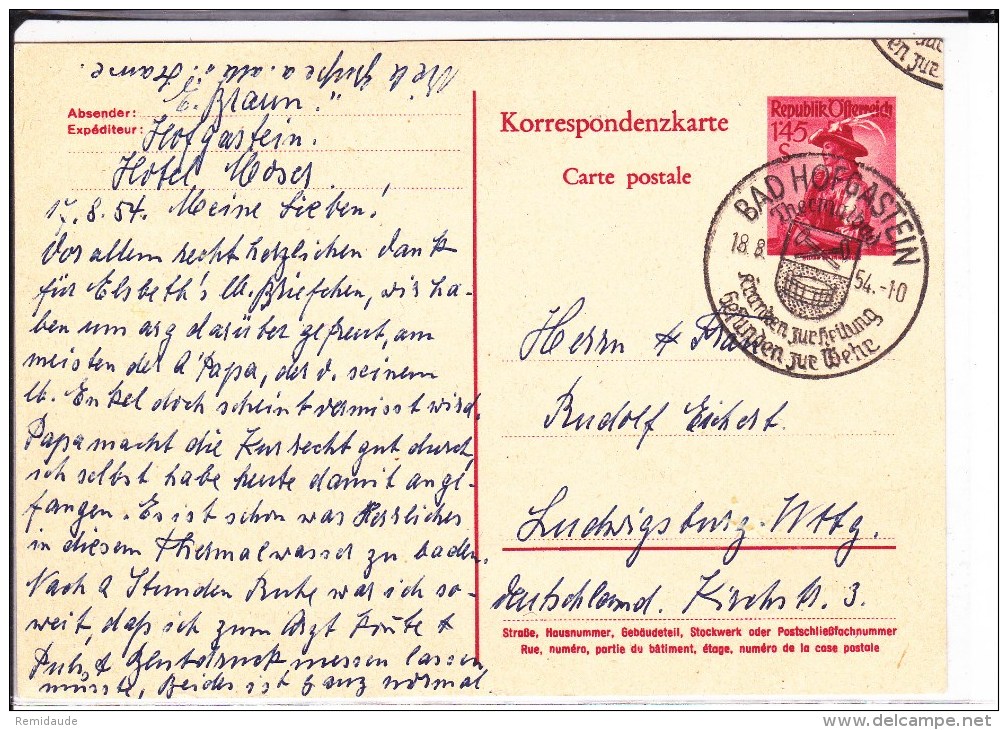 Viele Grüße a. alle, Mama
Absender: E. Braun.
Expéditeur: Hofgastein.
Hotel Moser
17.8.54. Meine Lieben!
Vor allem recht herzlichen Dank
für Elsbeth's lb. Briefchen, wir ha-
ben uns arg darüber gefreut, am
meisten der Papa, der v. seinem
lb. Enkel doch scheint vermisst wird.
Papa macht die Kur recht gut durch,
ich selbst habe heute damit ange-
fangen. Es ist schon was Herrliches
in diesem Thermalwasser zu baden.
Nach 2 Stunden Ruhe war ich so-
weit, daß ich zum Arzt konnte &
Puls & Blutdruck messen lassen
musste, Beides ist ganz normal
Korrespondenzkarte
Carte postale
Republik Österreich
145
S
BAD HOFGASTEIN
Thermalbad
18.8. 54.-10
Kranken zur Heilung
Gesunden zur Wehr
en zur
Herrn & Frau
Rudolf Eichert.
Ludwigsburg-Wttg.
Deutschland. Kirchstr. 3.
Straße, Hausnummer, Gebäudeteil, Stockwerk oder Postschließfachnummer
Rue, numéro, partie du bâtiment, étage, numéro de la case postale
Remidaude
www.delcampe.net